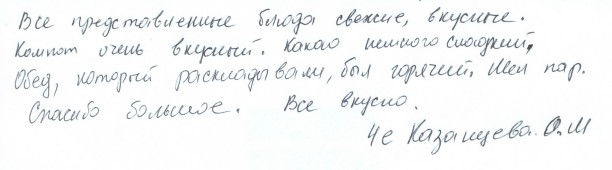 Все представленные блюда свежие, вкусные.
Компот очень вкусный. Какао немного сладкий,
Обед, который раскладывали, был горячий. Шел пар.
Спасибо большое. Все вкусно.
4е Казанцева О.М